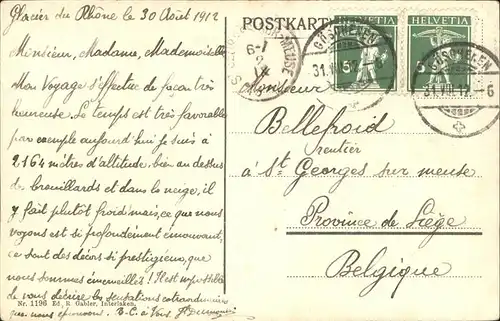 Glacier du Rhône le 30 Août 1912
Monsieur, Madame, Mademoiselle
Mon Voyage s'effectue de façon très
heureuse. Le temps est très favorable
par exemple aujourd'hui je suis à
2164 mètres d'altitude, bien au dessus
des brouillards et dans la neige, il
y fait plutôt froid mais, ce que nous
voyons est si profondément émouvant,
ce sont des décors si prestigieux, que
nous sommes émerveillés! Il est impossible
de vous décrire les sensations extraordinaires
que nous éprouvons. B.C. à Vous
Nr. 1196 Ed. R. Gabler, Interlaken.
POSTKARTE
HELVETIA HELVETIA
5 5
GÖSCHENEN
31.VIII.12.-6
GÖSCHENEN
31.VIII.12.-6
MEUSE
6-7
2
IX
Monsieur
Bellefroid
rentier
à St Georges sur meuse
Province de Liège
Belgique